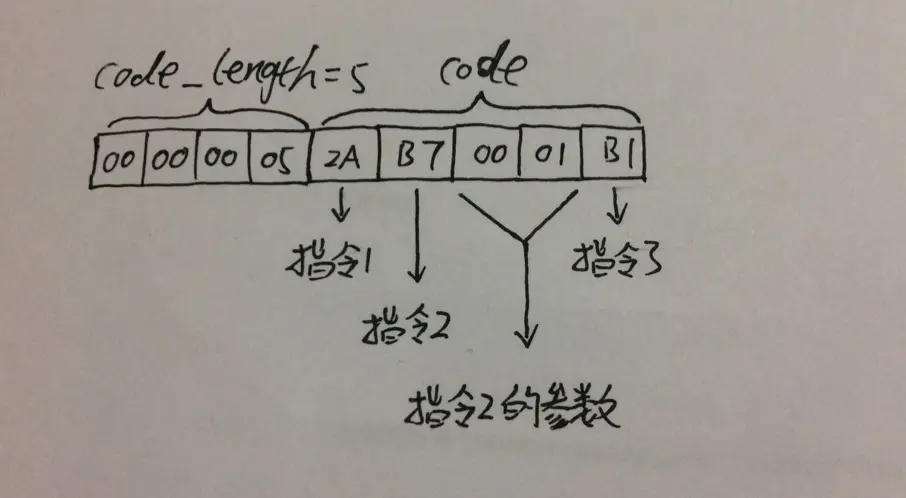 code_length=5 code
00 00 00 05 2A B7 00 01 B1
指令1 指令3
指令2
指令2的参数